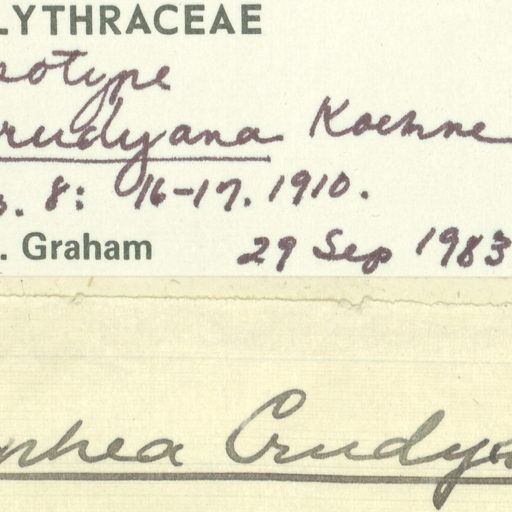 LYTHRACEAE
sotype
rudyana Koehne
. 8: 16-17. 1910.
. Graham 29 Sep 1983
phea Crudy